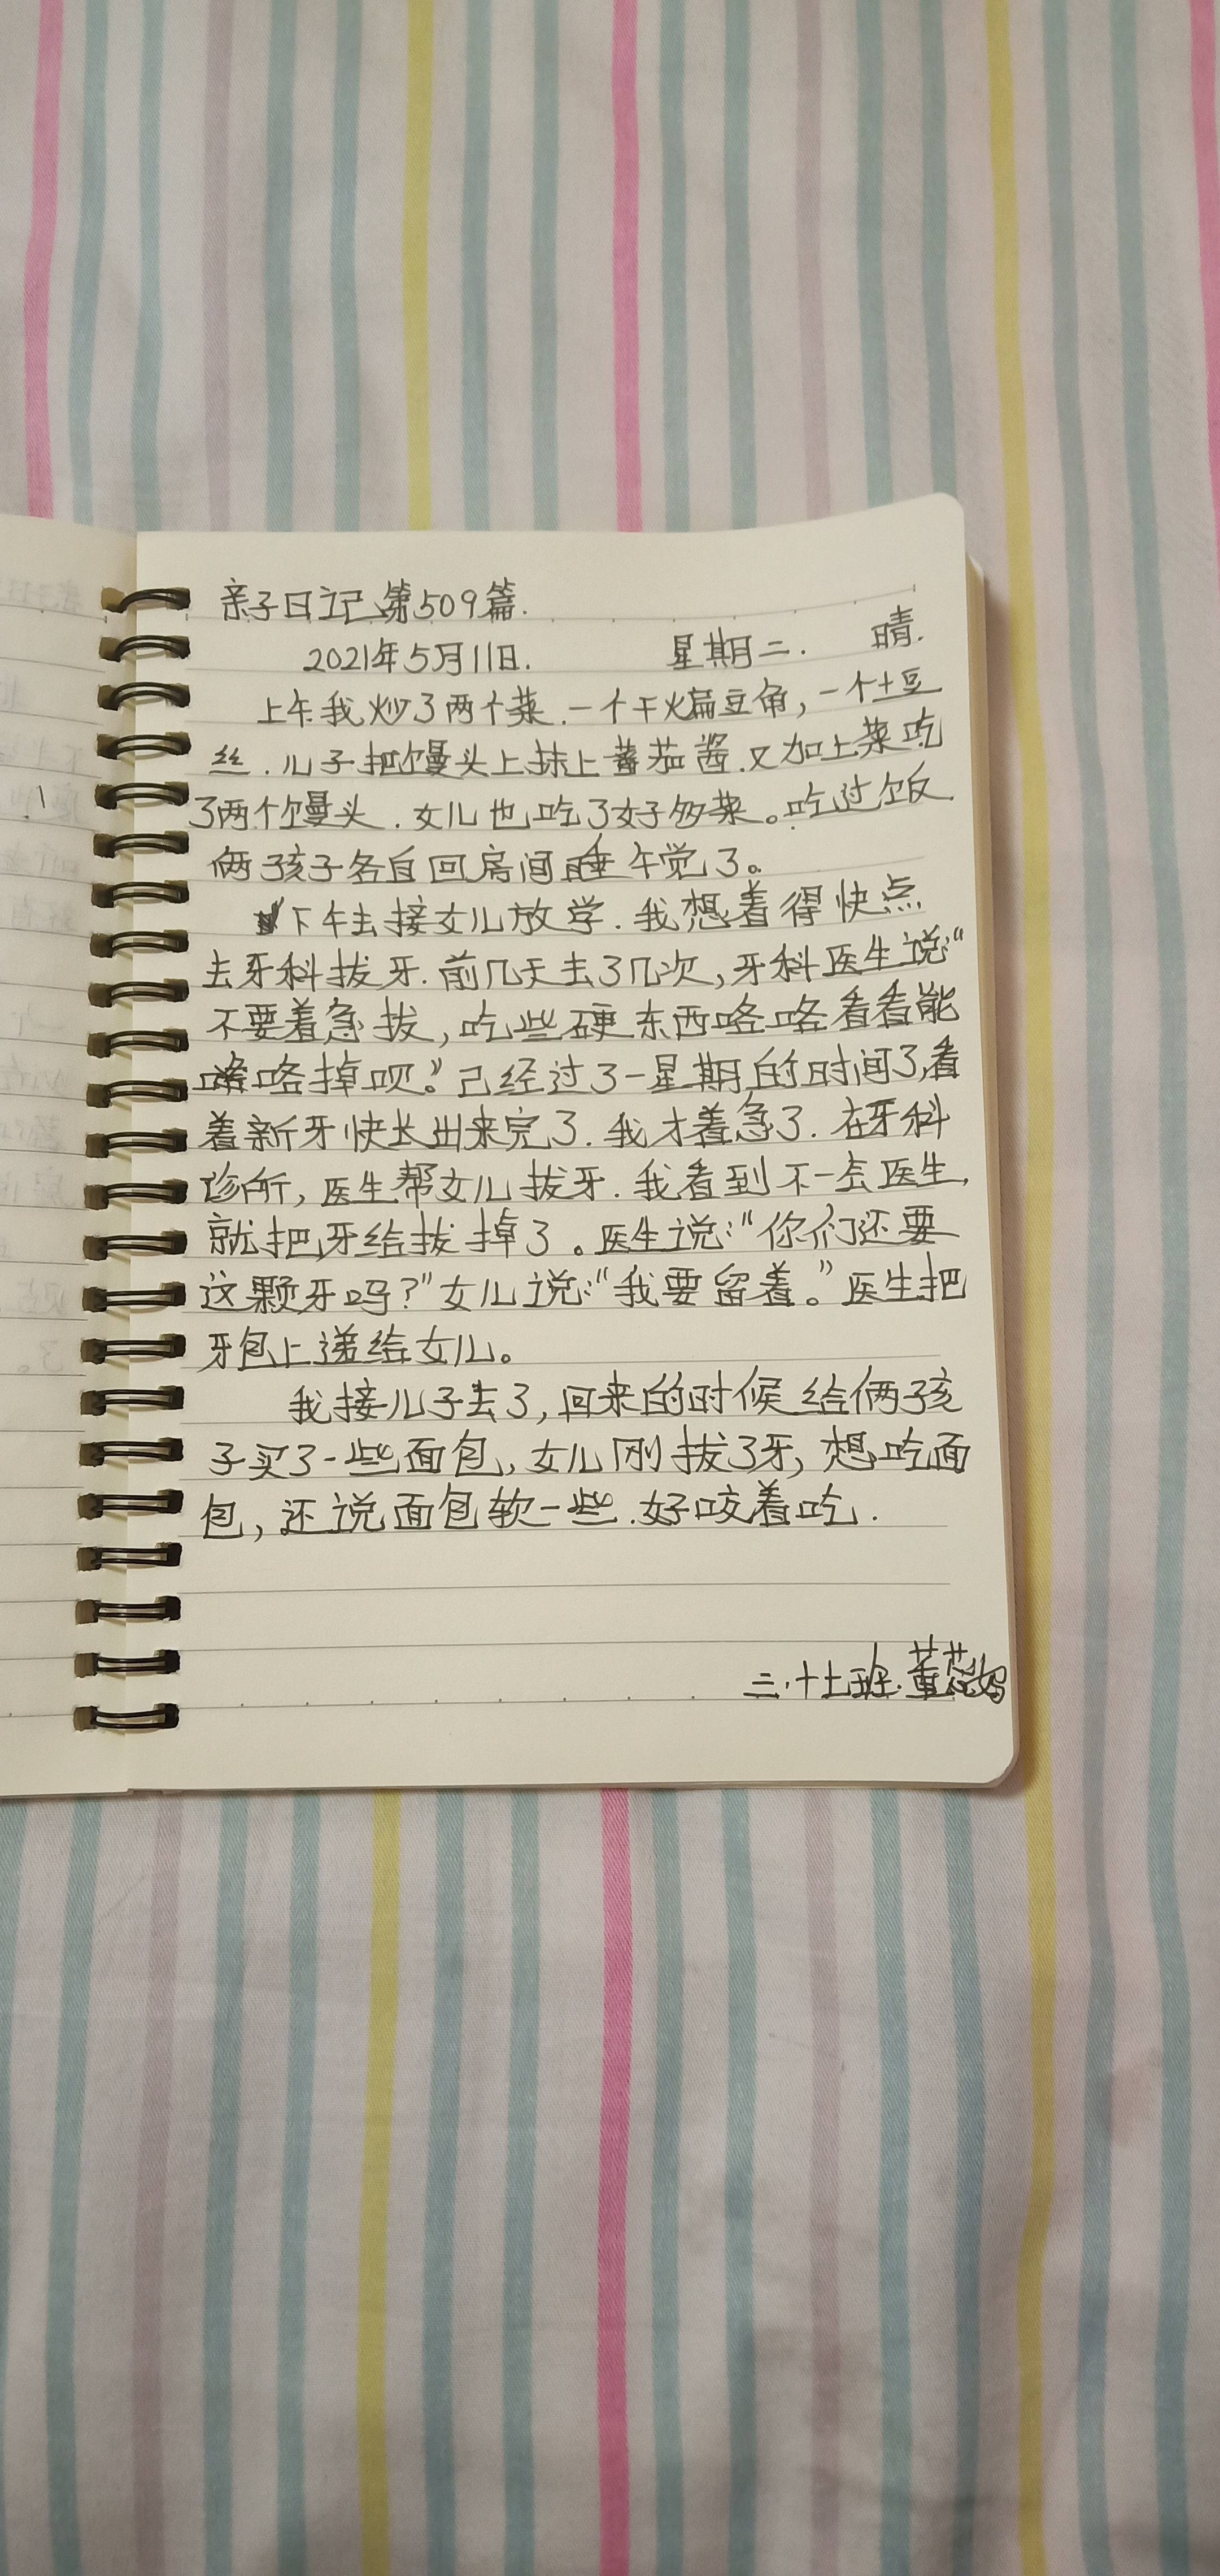 亲子日记第509篇.
2021年5月11日. 星期二. 晴.
上午我炒了两个菜.一个干煸豆角,一个土豆
丝.儿子把馒头上抹上蕃茄酱.又加上菜吃
了两个馒头.女儿也吃了好多菜。吃过饭
俩孩子各自回房间睡午觉了。
下午去接女儿放学.我想着得快点
去牙科拔牙.前几天去了几次,牙科医生说:“
不要着急拔,吃些硬东西咯咯看看能
咯掉呗。”已经过了一星期的时间了,看
着新牙快长出来完了.我才着急了.在牙科
诊所,医生帮女儿拔牙.我看到不一会医生,
就把牙给拔掉了。医生说:“你们还要
这颗牙吗?”女儿说:“我要留着。”医生把
牙包上递给女儿。
我接儿子去了,回来的时候给俩孩
子买了一些面包,女儿刚拔了牙,想吃面
包,还说面包软一些.好咬着吃.
三.十七班.董蕊妈